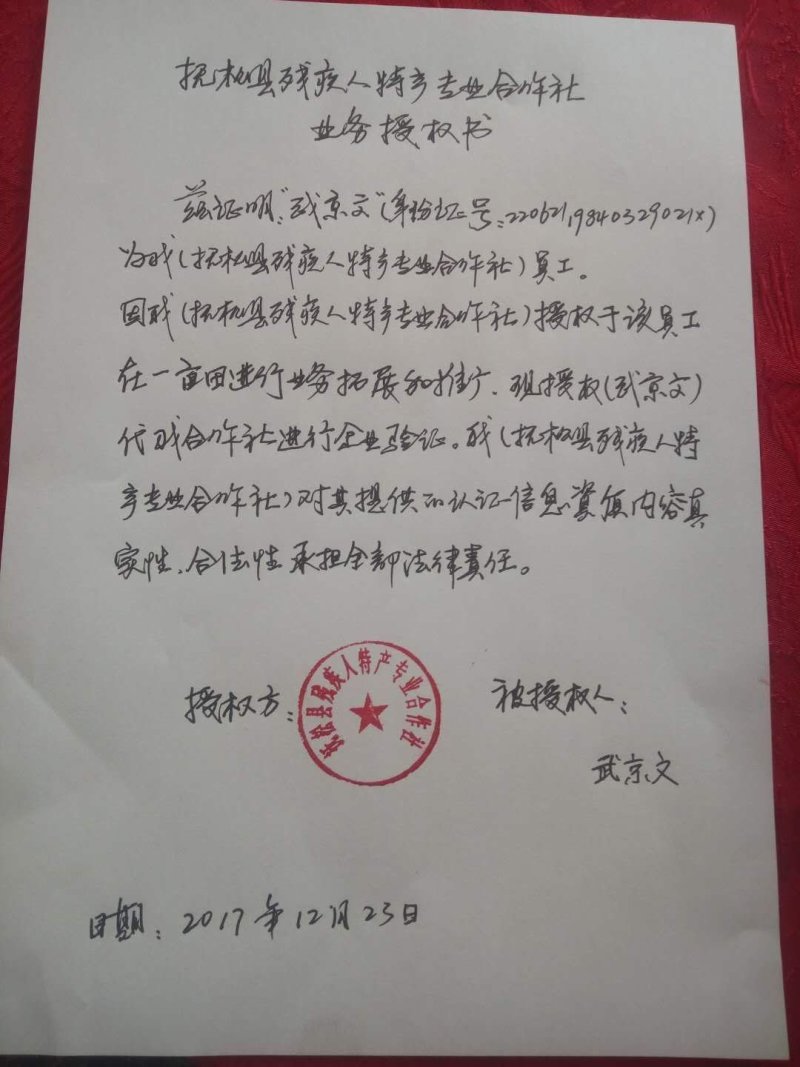 抚松县残疾人特产专业合作社
业务授权书
兹证明"武京文"(身份证号:22062119840329021X)
为我(抚松县残疾人特产专业合作社)员工。
因我(抚松县残疾人特产专业合作社)授权于该员工
在一亩田进行业务拓展和推广、现授权(武京文)
代我合作社进行企业验证。我(抚松县残疾人特
产专业合作社)对其提供的认证信息资质内容真
实性、合法性承担全部法律责任。
授权方:
抚松县残疾人特产专业合作社
被授权人:
武京文
日期:2017年12月23日